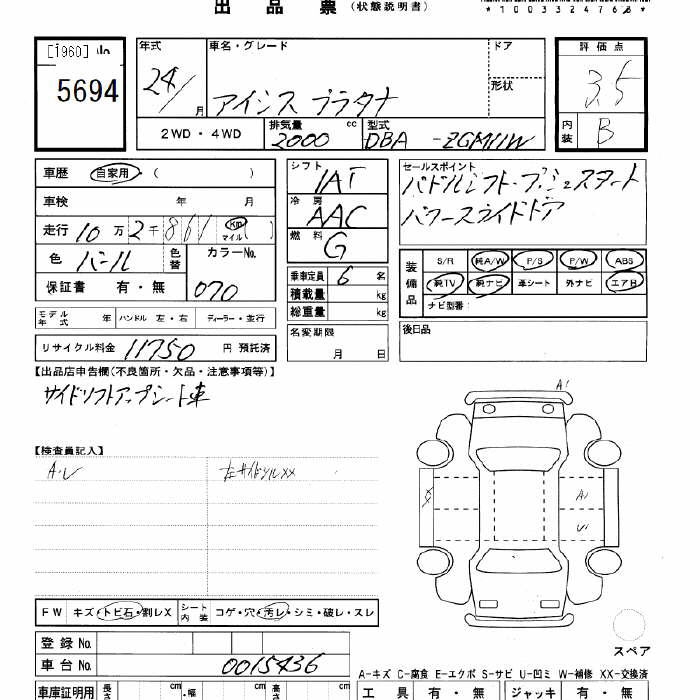 出品票 (状態説明書)
*100332476*
[1960]
5694
年式 24/ 月
車名・グレード アイシス プラタナ
ドア
形状
評価点 3.5
内装 B
2WD・4WD
排気量 2000 cc
型式 DBA -ZGM11W
車歴 自家用 ( )
車検 年 月
走行 10万2千861 Km マイル ( )
色 パール 色替
カラーNo. 070
保証書 有・無
シフト IAT
冷房 AAC
燃料 G
乗車定員 6 名
積載量 kg
総重量 kg
セールスポイント
パドルシフト・プッシュスタート
パワースライドドア
装備品 S/R 純A/W P/S P/W ABS
純TV 純ナビ 革シート 外ナビ エアB
ナビ型番:
モデル年式 年 ハンドル 左・右 ディーラー・並行
名変期限 月 日
後日品
リサイクル料金 11750 円 預託済
【出品店申告欄(不良箇所・欠品・注意事項等)】
サイドリフトアップシート車
【検査員記入】
A・U 左サイドシルXX
A1
X
A1
U1
FW キズ・トビ石・割レX シート内装 コゲ・穴・汚レ・シミ・破レ・スレ
スペア
登録No.
車台No. 0015436
A-キズ C-腐食 E-エクボ S-サビ U-凹ミ W-補修 XX-交換済
車庫証明用 長さ cm 幅 cm cm
工具 有・無 ジャッキ 有・無